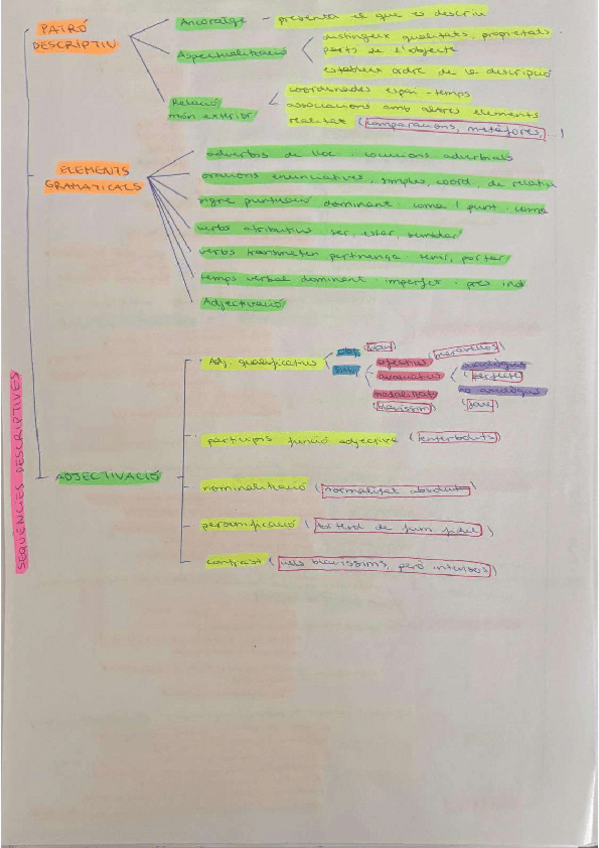 PATRÓ
DESCRIPTIU
Ancoratge - presenta el que es descriu
Aspectualització
distingeix qualitats, propietats
parts de l'objecte
estableix ordre de la descripció
Relació
món exterior
coordenades espai - temps
associacions amb altres elements
realitat (comparacions, metàfores, ...)
ELEMENTS
GRAMATICALS
adverbis de lloc · locucions adverbials
oracions enunciatives · simples, coord, de relatiu
signe puntuació dominant · coma / punt · coma
verbs atributius · ser, estar, semblar
verbs transmeten pertinença · tenir, portar
temps verbal dominant · imperfet · pres ind
Adjectivació
SEQÜÈNCIES DESCRIPTIVES
ADJECTIVACIÓ
Adj. qualificatius
obj
subj
afectius (meravellós)
avaluatius
axiològics
(perfecte)
no axiològics
(jove)
modalitzats
(blavíssim)
participis funció adjectiva
nominalització (normalitat absoluta)
personificació
de fum fidel)
contrast (ulls blavíssims, però intensos)